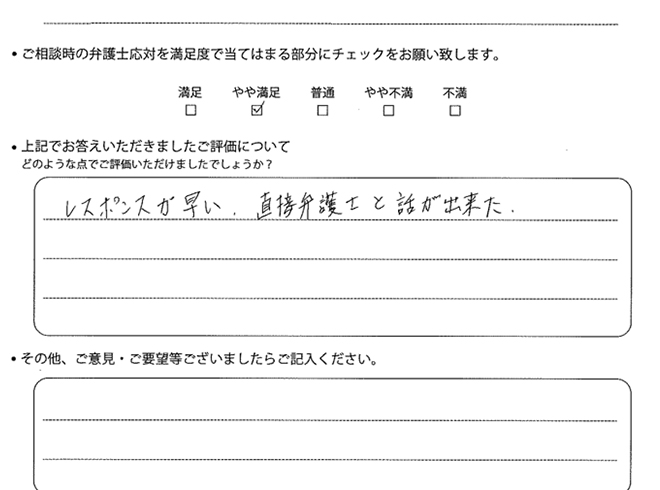 • ご相談時の弁護士応対を満足度で当てはまる部分にチェックをお願い致します。
満足 やや満足 普通 やや不満 不満
□ ☑ □ □ □
• 上記でお答えいただきましたご評価について
どのような点でご評価いただけましたでしょうか？
レスポンスが早い．直接弁護士と話が出来た．
• その他、ご意見・ご要望等ございましたらご記入ください。